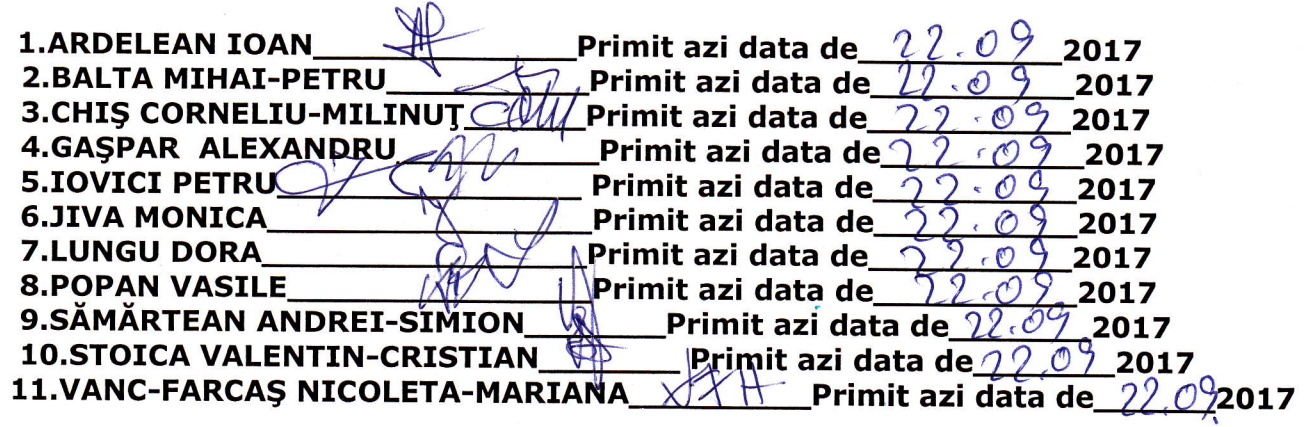 1.ARDELEAN IOAN____________Primit azi data de 22.09 2017
2.BALTA MIHAI-PETRU____________Primit azi data de 22.09 2017
3.CHIŞ CORNELIU-MILINUŢ____________Primit azi data de 22.09 2017
4.GAŞPAR ALEXANDRU____________Primit azi data de 22.09 2017
5.IOVICI PETRU____________Primit azi data de 22.09 2017
6.JIVA MONICA____________Primit azi data de 22.09 2017
7.LUNGU DORA____________Primit azi data de 22.09 2017
8.POPAN VASILE____________Primit azi data de 22.09 2017
9.SĂMĂRTEAN ANDREI-SIMION____________Primit azi data de 22.09 2017
10.STOICA VALENTIN-CRISTIAN____________Primit azi data de 22.09 2017
11.VANC-FARCAŞ NICOLETA-MARIANA____________Primit azi data de 22.09 2017